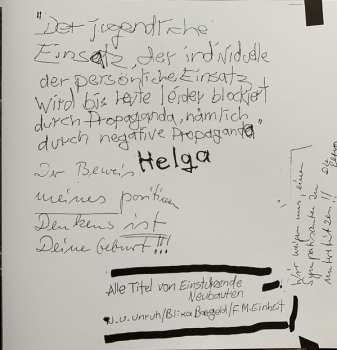 "Der jugendliche
Einsatz, der individuelle
der persönliche Einsatz
wird bis heute leider blockiert
durch Propaganda, nämlich
durch negative Propaganda"
Helga
Der Beweis
meines positiven
Denkens ist
Deine Geburt!!!
Alle Titel von Einstürzende
Neubauten
N.U. Unruh/Blixa Bargeld/F.M. Einheit
Wir weigern uns, einen
Sympathisanten zu
unterstützen!!